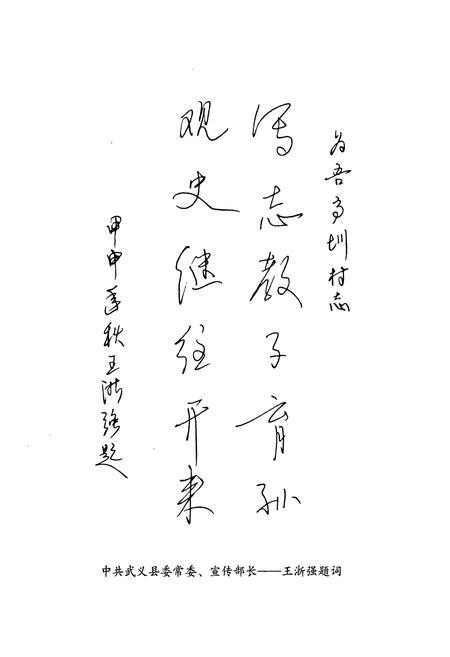 为吾高圳村志
写志教子育孙
观史继往开来
甲申年秋王浙强题
中共武义县委常委、宣传部长——王浙强题词